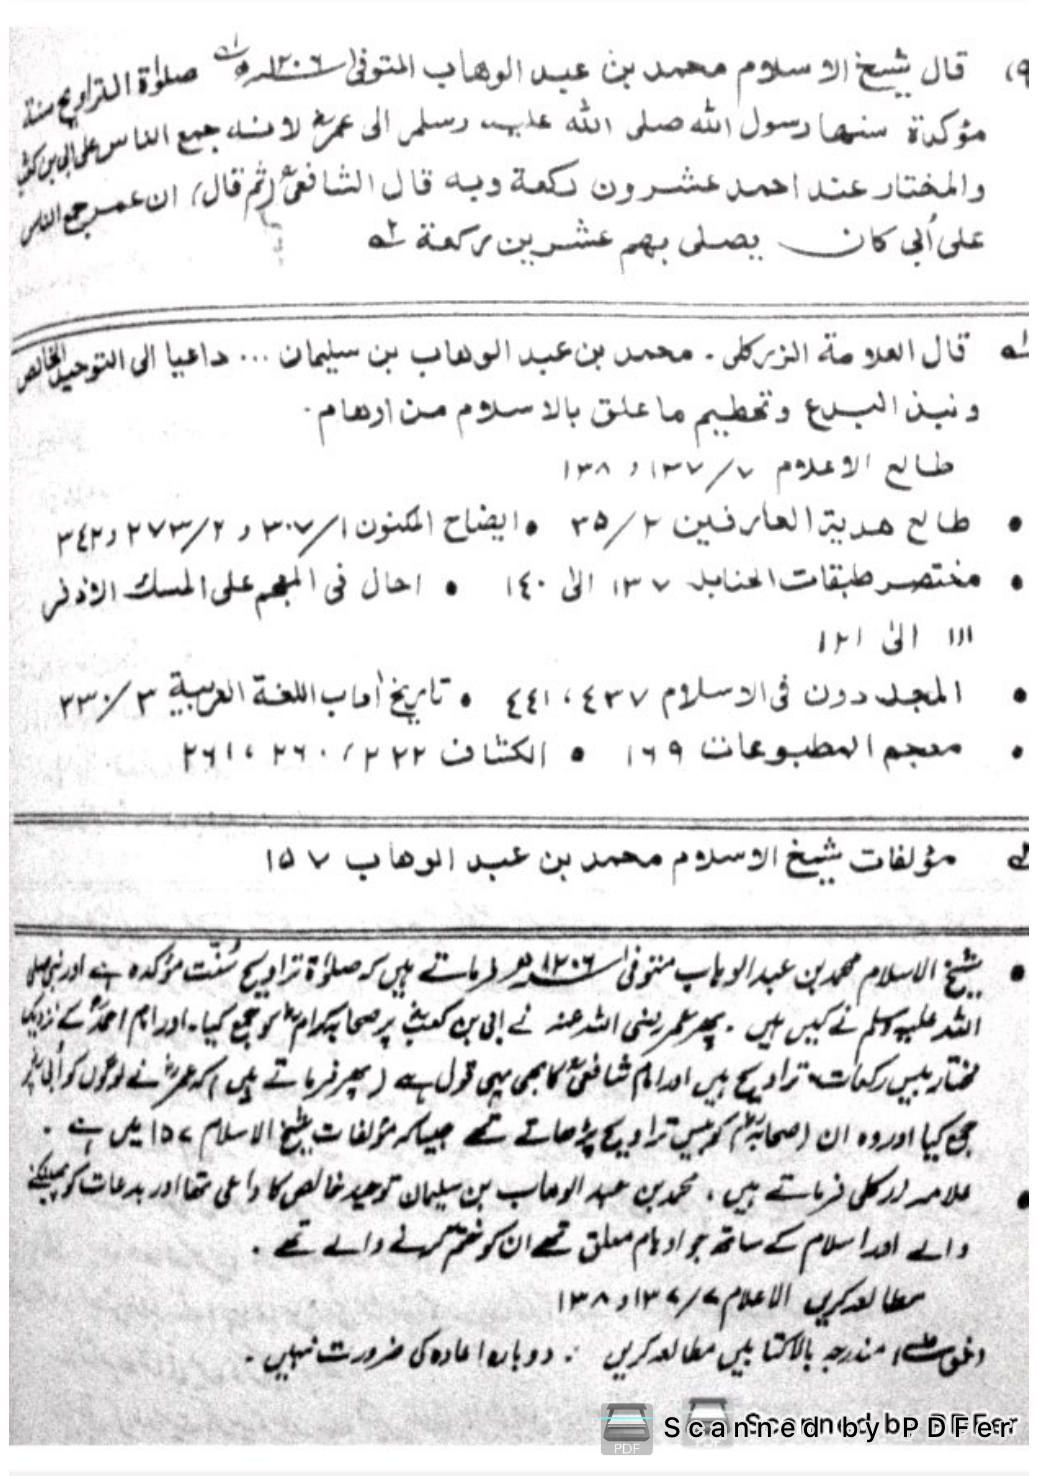 ٩) قال شيخ الاسلام محمد بن عبد الوهاب المتوفى ١٢٠٦ھ صلوٰة التراويح سنة
مؤكدة سنها رسول الله صلى الله عليه وسلم الى عمرؓ لانه جمع الناس على ابى بن كعبؓ
والمختار عند احمد عشرون ركعة وبه قال الشافعىؒ (ثم قال) ان عمر جمع الناس
على أبي كان يصلى بهم عشرين ركعة
قال العلامة الزركلى . محمد بن عبد الوهاب بن سليمان ... داعيا الى التوحيد الخالص
ونبذ البدع وتحطيم ما علق بالاسلام من اوهام .
طالع الاعلام ٧/١٣٧ و ١٣٨
• طالع هدية العارفين ٢/٣٥ • ايضاح المكنون ١/٣٠٧ و ٢/٢٧٣ و ٣٤٢
• مختصر طبقات الحنابلة ١٣٧ الىٰ ١٤٠ • احال فى المعجم على المسك الاذفر
١١١ الىٰ ١٢١
• المجددون فى الاسلام ٤٣٧ ، ٤٤١ • تاريخ آداب اللغة العربية ٣/٣٣٠
• معجم المطبوعات ١٦٩ • الكشاف ٢٢٢ / ٢٦٠ ، ٢٦١
مؤلفات شيخ الاسلام محمد بن عبد الوهاب ١٥٧
• شیخ الاسلام محمد بن عبد الوہاب متوفیٰ ١٢٠٦ھ فرماتے ہیں کہ صلوٰة تراویح سُنّت مؤکدہ ہے اور نبی صلی
اللہ علیہ وسلم نے کیں ہیں . پھر عمر رضی اللہ عنہ نے ابی بن کعبؓ پر صحابہ کرامؓ کو جمع کیا . اور امام احمدؒ کے نزدیک
مختار بیس رکعات تراویح ہیں اور امام شافعیؒ کا بھی یہی قول ہے (پھر فرماتے ہیں) کہ عمرؓ نے لوگوں کو اُبیؓ پر
جمع کیا اور وہ ان (صحابہؓ) کو بیس تراویح پڑھاتے تھے جیسا کہ مؤلفات شیخ الاسلام ١٥٧ میں ہے .
• علامہ زرکلی فرماتے ہیں . محمد بن عبد الوہاب بن سلیمان توحید خالص کا داعی تھا اور بدعات کو پھینکنے
والے اور اسلام کے ساتھ جو اوہام معلق تھے ان کو ختم کرنے والے تھے .
مطالعہ کریں الاعلام ٧/١٣٧ و ١٣٨
مندرجہ بالا کتابیں مطالعہ کریں . دوبارہ اعادہ کی ضرورت نہیں .
Scanned by PDFer